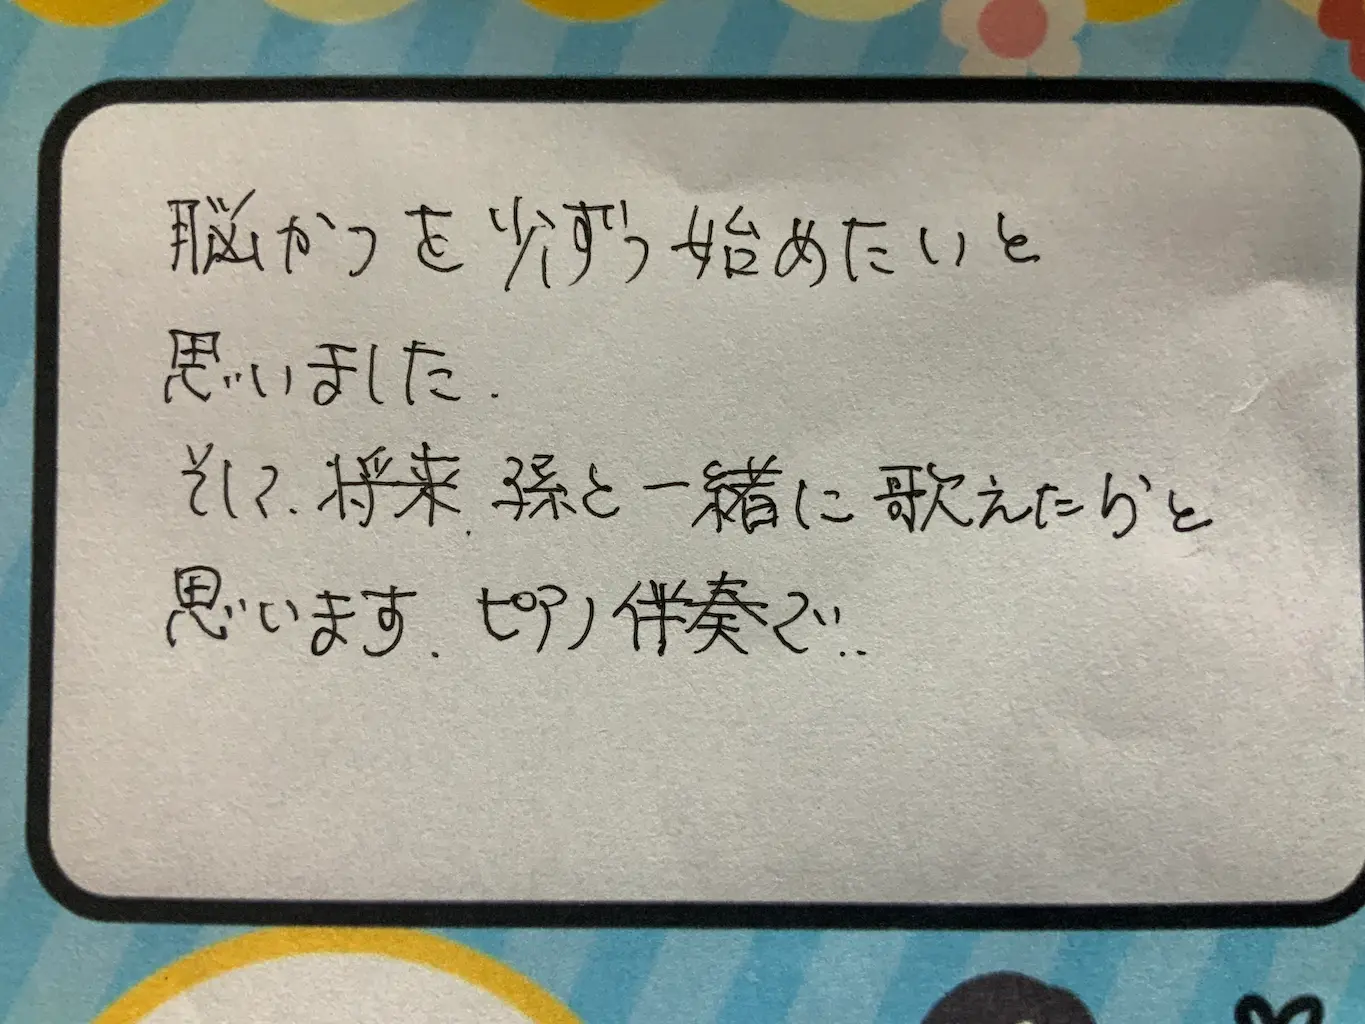 脳かつを少ずつ始めたいと
思いました.
そして、将来、孫と一緒に歌えたらと
思います. ピアノ伴奏で..